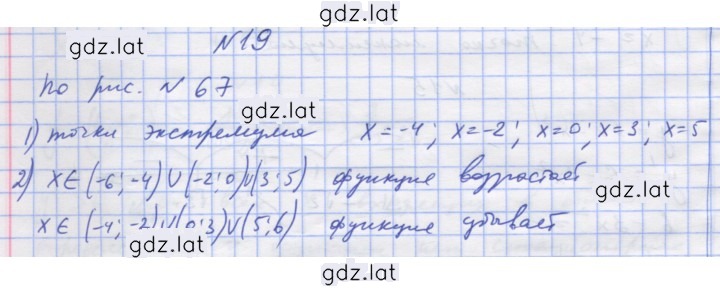 gdz.lat
gdz.lat
N19
по рис. N 67
gdz.lat
1) точки экстремума x=-4; x=-2; x=0; x=3; x=5
2) x∈(-6;-4)∪(-2;0)∪(3;5) функция возрастает
gdz.lat
x∈(-4;-2)∪(0;3)∪(5;6) функция убывает
gdz.lat
gdz.lat